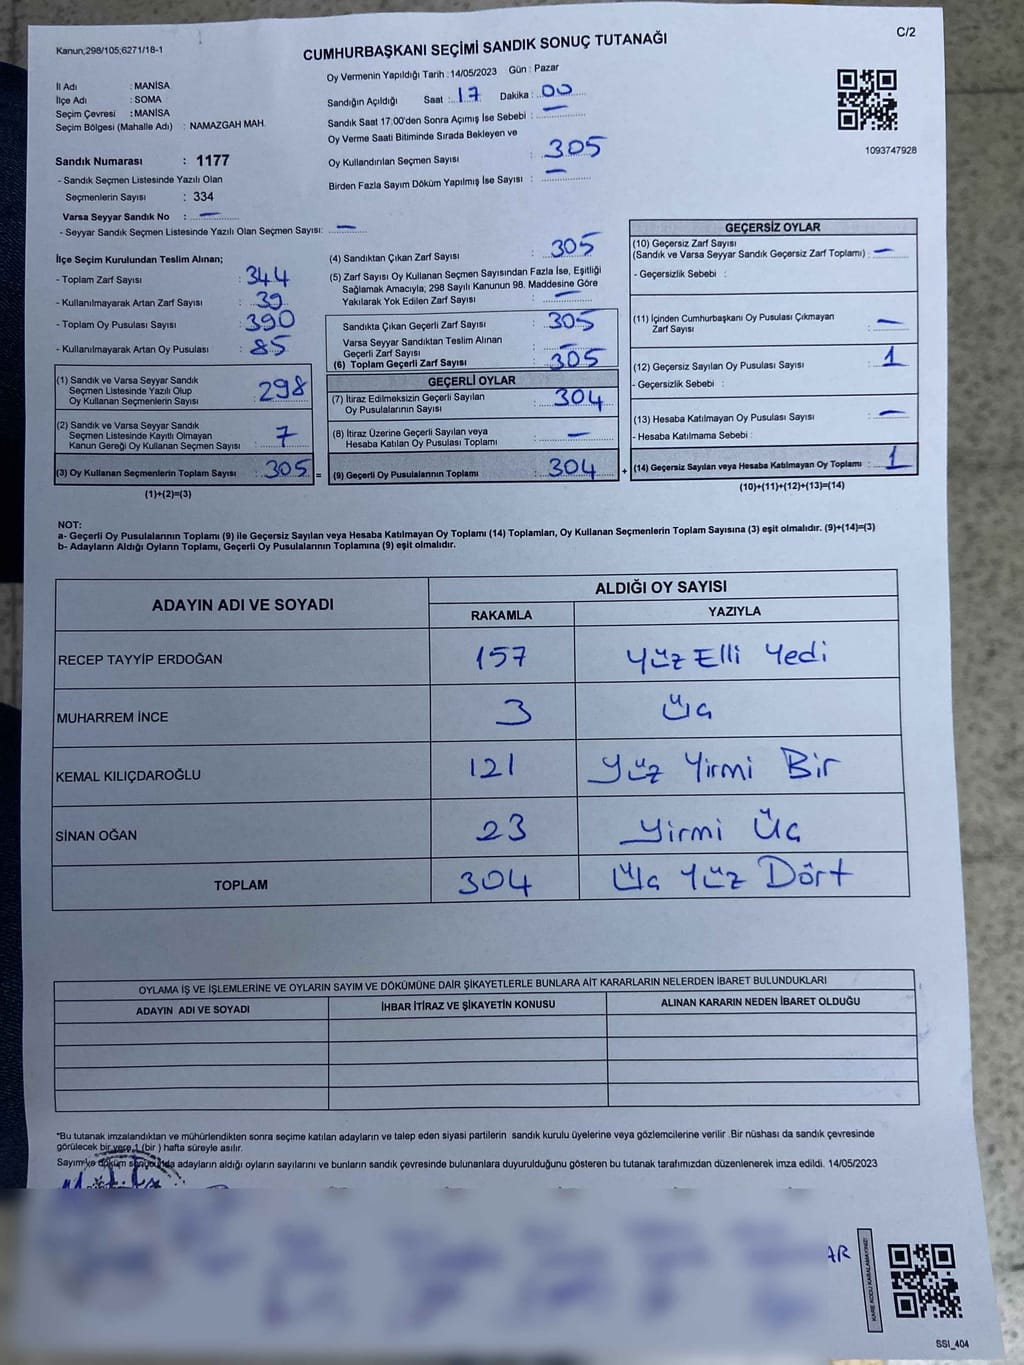 Kanun;298/105;6271/18-1
C/2
CUMHURBAŞKANI SEÇİMİ SANDIK SONUÇ TUTANAĞI
İl Adı : MANİSA
İlçe Adı : SOMA
Seçim Çevresi : MANİSA
Seçim Bölgesi (Mahalle Adı) : NAMAZGAH MAH.
Sandık Numarası : 1177
- Sandık Seçmen Listesinde Yazılı Olan
Seçmenlerin Sayısı : 334
Varsa Seyyar Sandık No : —
- Seyyar Sandık Seçmen Listesinde Yazılı Olan Seçmen Sayısı: —
Oy Vermenin Yapıldığı Tarih : 14/05/2023 Gün : Pazar
Sandığın Açıldığı Saat : 17 Dakika : 00
Sandık Saat 17:00'den Sonra Açımış İse Sebebi : —
Oy Verme Saati Bitiminde Sırada Bekleyen ve
Oy Kullandırılan Seçmen Sayısı : 305
Birden Fazla Sayım Döküm Yapılmış İse Sayısı : —
1093747928
İlçe Seçim Kurulundan Teslim Alınan;
- Toplam Zarf Sayısı : 344
- Kullanılmayarak Artan Zarf Sayısı : 39
- Toplam Oy Pusulası Sayısı : 390
- Kullanılmayarak Artan Oy Pusulası : 85
(1) Sandık ve Varsa Seyyar Sandık
Seçmen Listesinde Yazılı Olup
Oy Kullanan Seçmenlerin Sayısı : 298
(2) Sandık ve Varsa Seyyar Sandık
Seçmen Listesinde Kayıtlı Olmayan
Kanun Gereği Oy Kullanan Seçmen Sayısı : 7
(3) Oy Kullanan Seçmenlerin Toplam Sayısı : 305 =
(1)+(2)=(3)
(4) Sandıktan Çıkan Zarf Sayısı : 305
(5) Zarf Sayısı Oy Kullanan Seçmen Sayısından Fazla İse, Eşitliği
Sağlamak Amacıyla; 298 Sayılı Kanunun 98. Maddesine Göre
Yakılarak Yok Edilen Zarf Sayısı : —
Sandıkta Çıkan Geçerli Zarf Sayısı : 305
Varsa Seyyar Sandıktan Teslim Alınan
Geçerli Zarf Sayısı : —
(6) Toplam Geçerli Zarf Sayısı : 305
GEÇERLİ OYLAR
(7) İtiraz Edilmeksizin Geçerli Sayılan
Oy Pusulalarının Sayısı : 304
(8) İtiraz Üzerine Geçerli Sayılan veya
Hesaba Katılan Oy Pusulası Toplamı : —
(9) Geçerli Oy Pusulalarının Toplamı : 304 +
GEÇERSİZ OYLAR
(10) Geçersiz Zarf Sayısı
(Sandık ve Varsa Seyyar Sandık Geçersiz Zarf Toplamı) : —
- Geçersizlik Sebebi :
(11) İçinden Cumhurbaşkanı Oy Pusulası Çıkmayan
Zarf Sayısı : —
(12) Geçersiz Sayılan Oy Pusulası Sayısı : 1
- Geçersizlik Sebebi :
(13) Hesaba Katılmayan Oy Pusulası Sayısı : —
- Hesaba Katılmama Sebebi :
(14) Geçersiz Sayılan veya Hesaba Katılmayan Oy Toplamı : 1
(10)+(11)+(12)+(13)=(14)
NOT:
a- Geçerli Oy Pusulalarının Toplamı (9) ile Geçersiz Sayılan veya Hesaba Katılmayan Oy Toplamı (14) Toplamları, Oy Kullanan Seçmenlerin Toplam Sayısına (3) eşit olmalıdır. (9)+(14)=(3)
b- Adayların Aldığı Oyların Toplamı, Geçerli Oy Pusulalarının Toplamına (9) eşit olmalıdır.
ADAYIN ADI VE SOYADI ALDIĞI OY SAYISI
RAKAMLA YAZIYLA
RECEP TAYYİP ERDOĞAN 157 Yüz Elli Yedi
MUHARREM İNCE 3 Üç
KEMAL KILIÇDAROĞLU 121 Yüz Yirmi Bir
SİNAN OĞAN 23 Yirmi Üç
TOPLAM 304 Üç Yüz Dört
OYLAMA İŞ VE İŞLEMLERİNE VE OYLARIN SAYIM VE DÖKÜMÜNE DAİR ŞİKAYETLERLE BUNLARA AİT KARARLARIN NELERDEN İBARET BULUNDUKLARI
ADAYIN ADI VE SOYADI İHBAR İTİRAZ VE ŞİKAYETİN KONUSU ALINAN KARARIN NEDEN İBARET OLDUĞU
*Bu tutanak imzalandıktan ve mühürlendikten sonra seçime katılan adayların ve talep eden siyasi partilerin sandık kurulu üyelerine veya gözlemcilerine verilir .Bir nüshası da sandık çevresinde
görülecek bir yere 1 (bir ) hafta süreyle asılır.
Sayım ve döküm adayların aldığı oyların sayılarını ve bunların sandık çevresinde bulunanlara duyurulduğunu gösteren bu tutanak tarafımızdan düzenlenerek imza edildi. 14/05/2023
AR
KARE KODU KARALAMAYINIZ!
SSI_404